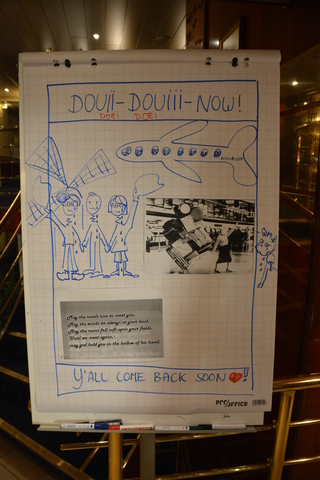 DOUïï-DOUïïï-NOW!
DOEI DOEI
May the roads rise to meet you,
May the winds be always at your back,
May the rains fall soft upon your fields,
Until we meet again,
may god hold you in the hollow of his hand.
Y'ALL COME BACK SOON